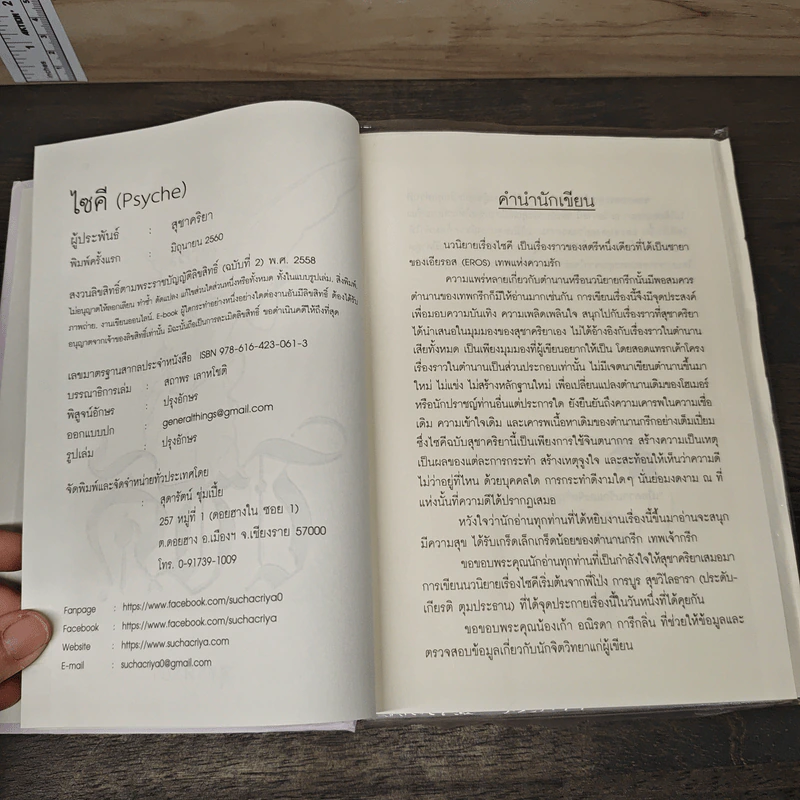 ไซคี (Psyche)
ผู้ประพันธ์ : สุชาคริยา
พิมพ์ครั้งแรก : มิถุนายน 2560
สงวนลิขสิทธิ์ตามพระราชบัญญัติลิขสิทธิ์ (ฉบับที่ 2) พ.ศ. 2558
ไม่อนุญาตให้ลอกเลียน ทำซ้ำ ดัดแปลง แก้ไขส่วนใดส่วนหนึ่งหรือทั้งหมด ทั้งในแบบรูปเล่ม, สิ่งพิมพ์,
ภาพถ่าย, งานเขียนออนไลน์, E-book ผู้ใดกระทำอย่างหนึ่งอย่างใดต่องานอันมีลิขสิทธิ์ ต้องได้รับ
อนุญาตจากเจ้าของลิขสิทธิ์เท่านั้น มิฉะนั้นถือเป็นการละเมิดลิขสิทธิ์ ขอดำเนินคดีให้ถึงที่สุด
เลขมาตรฐานสากลประจำหนังสือ ISBN 978-616-423-061-3
บรรณาธิการเล่ม : สถาพร เลาหโชติ
พิสูจน์อักษร : ปรุงอักษร
ออกแบบปก : generalthings@gmail.com
รูปเล่ม : ปรุงอักษร
จัดพิมพ์และจัดจำหน่ายทั่วประเทศโดย
: สุดารัตน์ ชุ่มเปี้ย
257 หมู่ที่ 1 (ดอยฮางใน ซอย 1)
ต.ดอยฮาง อ.เมืองฯ จ.เชียงราย 57000
โทร. 0-91739-1009
Fanpage : https://www.facebook.com/suchacriya0
Facebook : https://www.facebook.com/suchacriya
Website : https://www.suchacriya.com
E-mail : suchacriya0@gmail.com
คำนำนักเขียน
นวนิยายเรื่องไซคี เป็นเรื่องราวของสตรีหนึ่งเดียวที่ได้เป็นชายา
ของเอียรอส (EROS) เทพแห่งความรัก
ความแพร่หลายเกี่ยวกับตำนานหรือนวนิยายกรีกนั้นมีพอสมควร
ตำนานของเทพกรีกก็มีให้อ่านมากเช่นกัน การเขียนเรื่องนี้จึงมีจุดประสงค์
เพื่อมอบความบันเทิง ความเพลิดเพลินใจ สนุกไปกับเรื่องราวที่สุชาคริยา
ได้นำเสนอในมุมมองของสุชาคริยาเอง ไม่ได้อ้างอิงกับเรื่องราวในตำนาน
เสียทั้งหมด เป็นเพียงมุมมองที่ผู้เขียนอยากให้เป็น โดยสอดแทรกเค้าโครง
เรื่องราวในตำนานเป็นส่วนประกอบเท่านั้น ไม่มีเจตนาเขียนตำนานขึ้นมา
ใหม่ ไม่แข่ง ไม่สร้างหลักฐานใหม่ เพื่อเปลี่ยนแปลงตำนานเดิมของโฮเมอร์
หรือนักปราชญ์ท่านอื่นแต่ประการใด ยังยืนยันถึงความเคารพในความเชื่อ
เดิม ความเข้าใจเดิม และเคารพเนื้อหาเดิมของตำนานกรีกอย่างเต็มเปี่ยม
ซึ่งไซคีฉบับสุชาคริยานี้เป็นเพียงการใช้จินตนาการ สร้างความเป็นเหตุ
เป็นผลของแต่ละการกระทำ สร้างเหตุจูงใจ และสะท้อนให้เห็นว่าความดี
ไม่ว่าอยู่ที่ไหน ด้วยบุคคลใด การกระทำดีงามใดๆ นั่นย่อมงดงาม ณ ที่
แห่งนั้นที่ความดีได้ปรากฏเสมอ
หวังใจว่านักอ่านทุกท่านที่ได้หยิบงานเรื่องนี้ขึ้นมาอ่านจะสนุก
มีความสุข ได้รับเกร็ดเล็กเกร็ดน้อยของตำนานกรีก เทพเจ้ากรีก
ขอขอบพระคุณนักอ่านทุกท่านที่เป็นกำลังใจให้สุชาคริยาเสมอมา
การเขียนนวนิยายเรื่องไซคีเริ่มต้นจากพี่โป่ง การบูร สุขวิไลธารา (ประดับ-
เกียรติ ตุมประธาน) ที่ได้จุดประกายเรื่องนี้ในวันหนึ่งที่ได้คุยกัน
ขอขอบพระคุณน้องเก้า อณิรดา การีกลิ่น ที่ช่วยให้ข้อมูลและ
ตรวจสอบข้อมูลเกี่ยวกับนักจิตวิทยาแก่ผู้เขียน